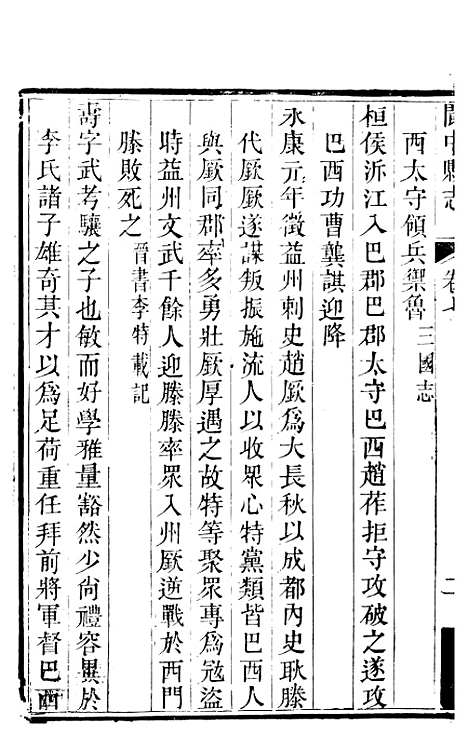 閬中縣志 卷七 二
西太守領兵禦魯 三國志
桓侯泝江入巴郡巴郡太守巴西趙莋拒守攻破之遂攻
巴西功曹龔諶迎降
永康元年徵益州刺史趙廞爲大長秋以成都內史耿滕
代廞廞遂謀叛振施流人以收衆心特黨類皆巴西人
與廞同郡率多勇壯廞厚遇之故特等聚衆專爲寇盜
時益州文武千餘人迎滕滕率衆入州廞逆戰於西門
滕敗死之 晉書李特載記
壽字武考驤之子也敏而好學雅量豁然少尙禮容異於
李氏諸子雄奇其才以爲足荷重任拜前將軍督巴西